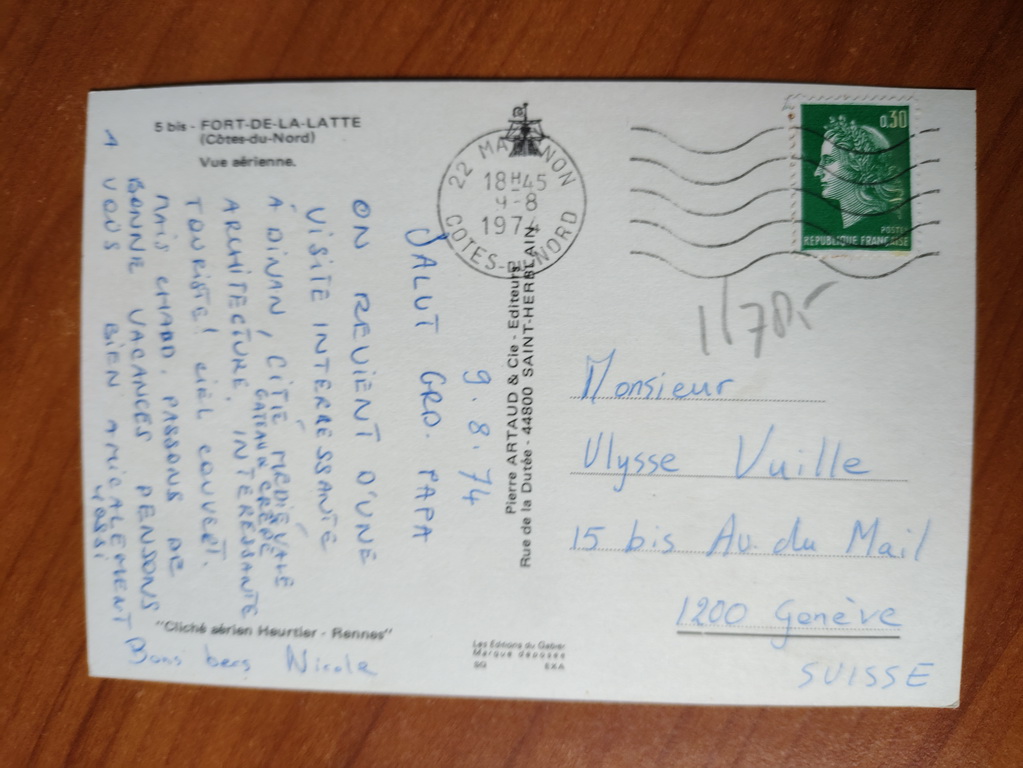 5 bis - FORT-DE-LA-LATTE
(Côtes-du-Nord)
Vue aérienne.
9.8.74
SALUT GRD. PAPA
ON REVIENT D'UNE
VISITE INTERRESSANTE
À DINAN, CITIÉ MÉDIÉVALE
GATEAU CRÊPE
ARCHITECTURE. INTERESSANTE
TOURISTE! CIEL COUVERT.
MAIS CHAUD. PASSONS DE
BONNE VACANCES PENSONS
A VOUS BIEN AMICALEMENT
Bons becs Nicole
"Cliché aérien Heurtier - Rennes"
Pierre ARTAUD & Cie - Editeurs
Rue de la Dutée - 44800 SAINT-HERBLAIN
Les Editions du Gabier
Marque déposée
SG EXA
22 MA NON
18H45
9-8
1974
COTES-D NORD
0,30
POSTES
REPUBLIQUE FRANÇAISE
Monsieur
Ulysse Vuille
15 bis Av. du Mail
1200 Genève
SUISSE